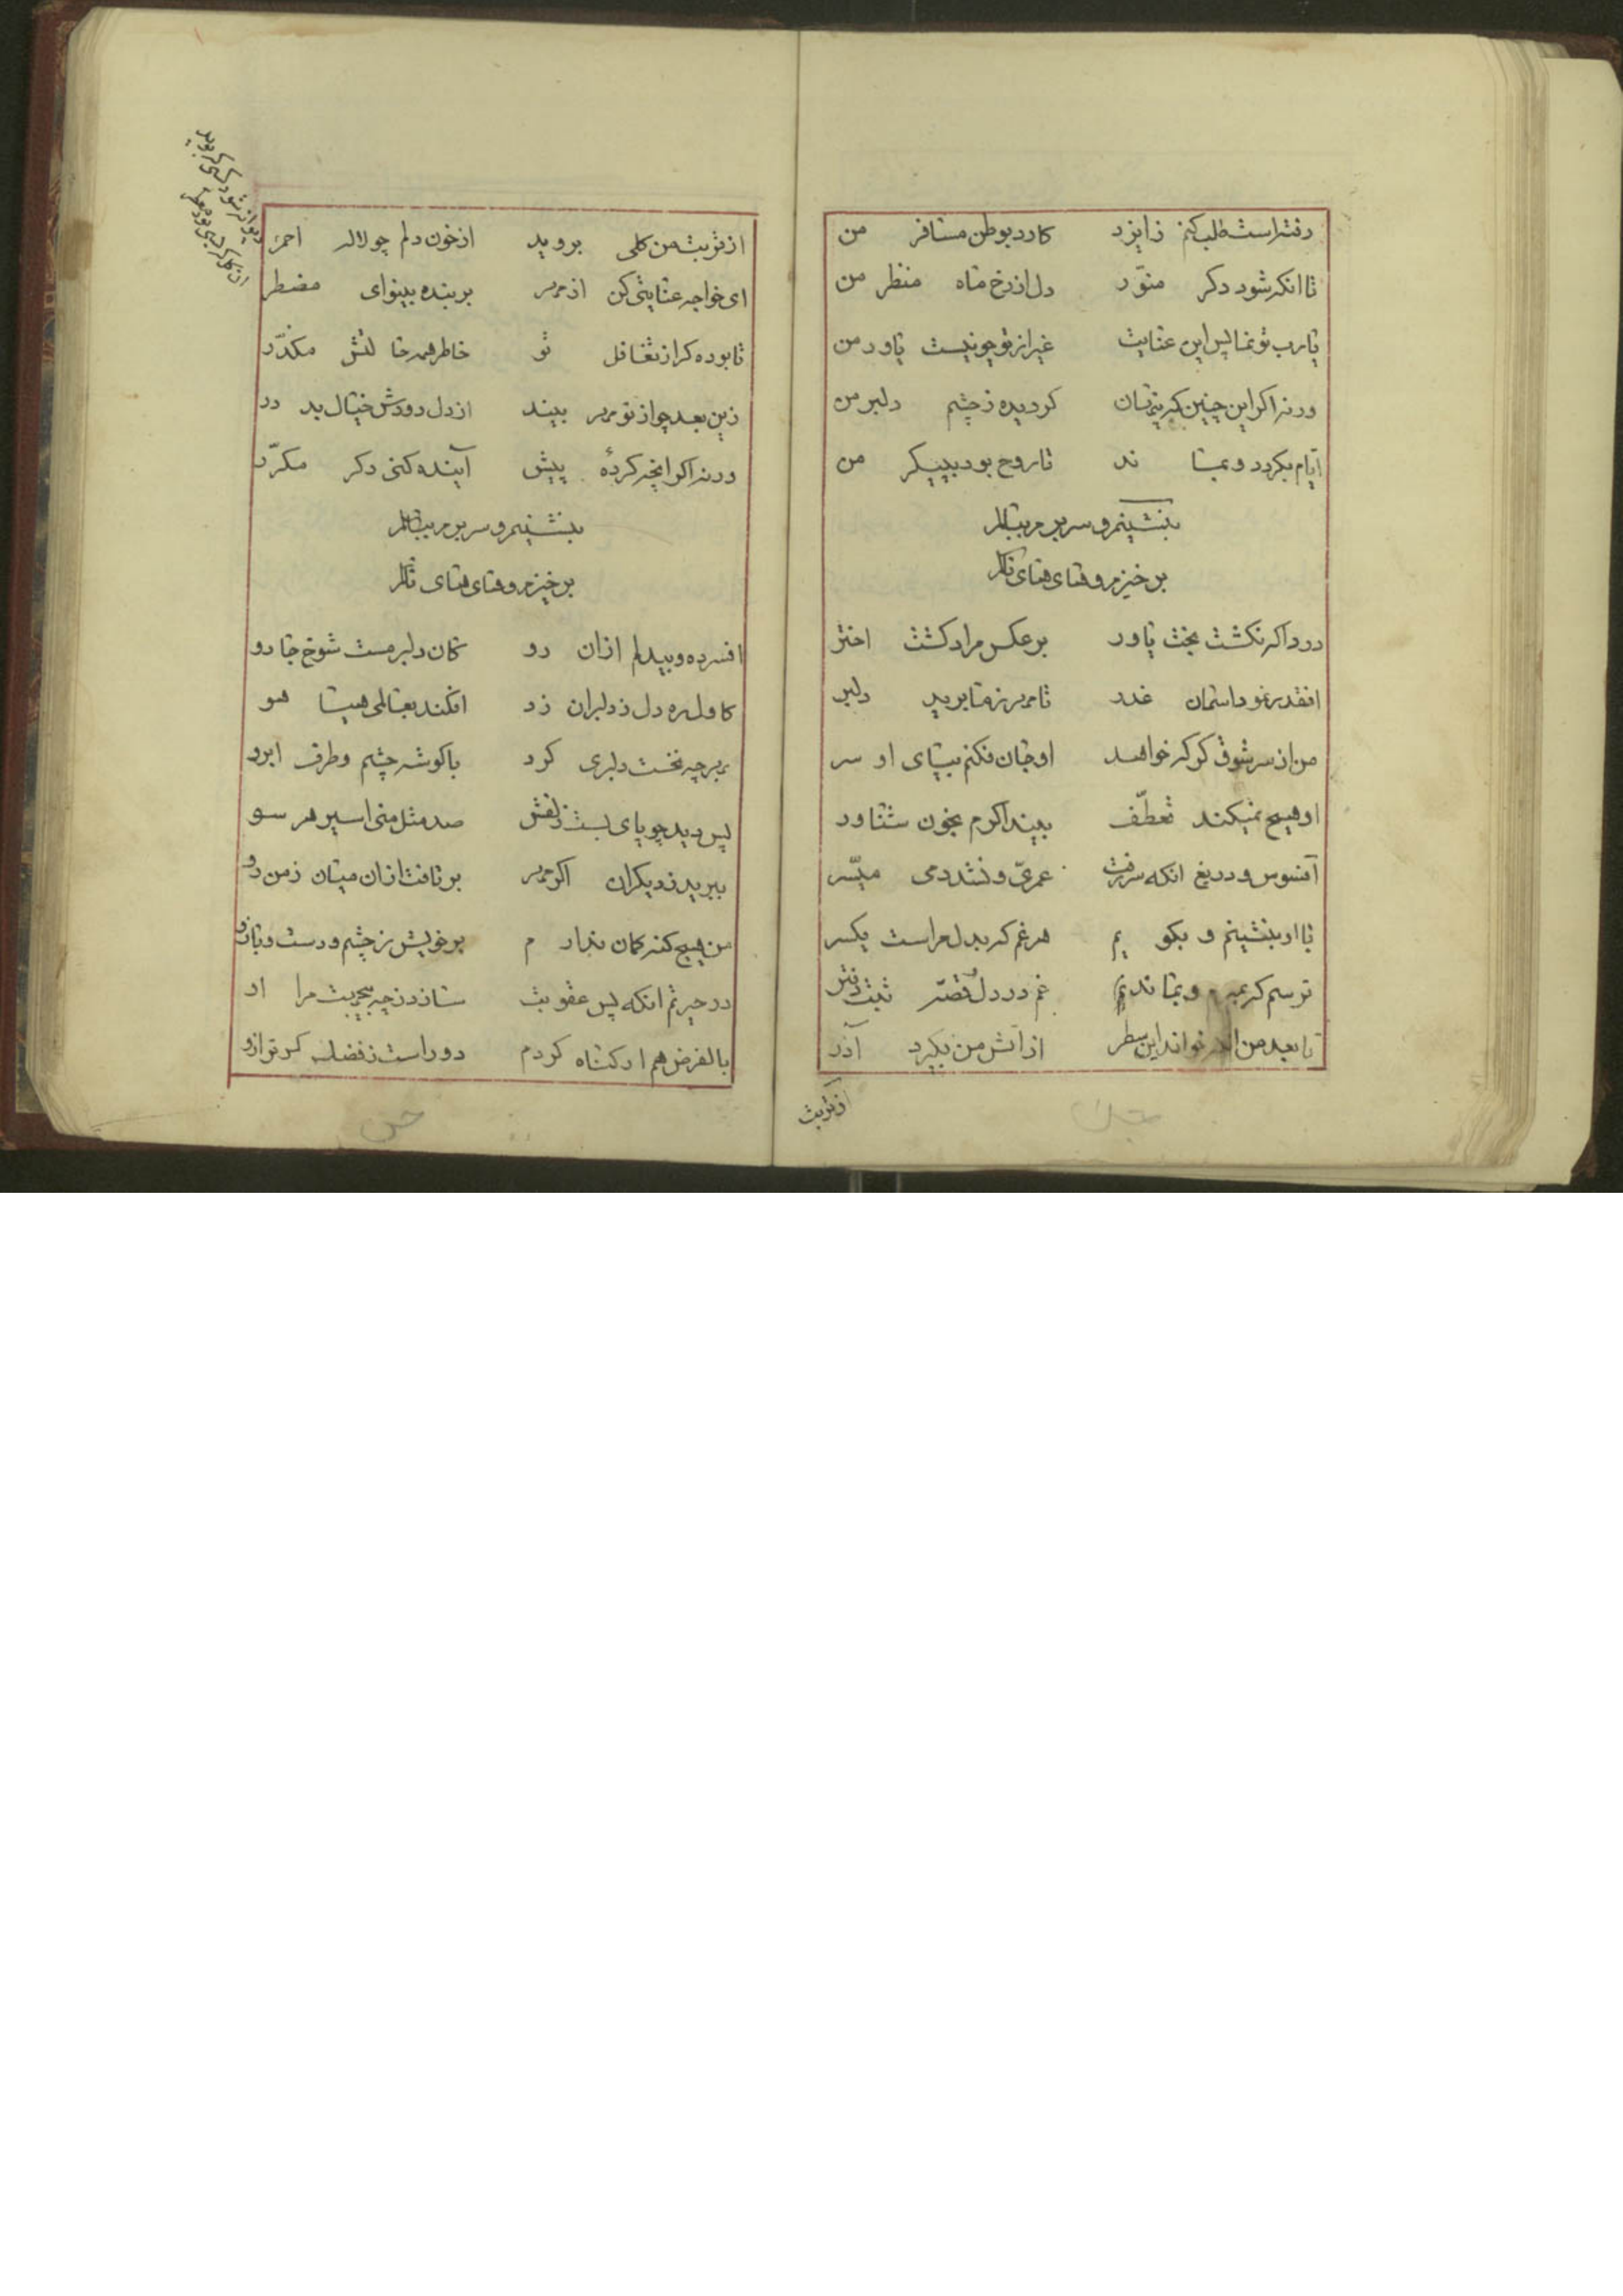 رفته است طلب کنم ز ایزد کارد بوطن مسافر من
تا انکه شود دکر منوّر دل از رخ ماه منظر من
یا رب تو نما پس این عنایت غیر از تو چو نیست یاور من
ورنه اکر این چنین که پنهان کردیده ز چشم دلبر من
ایام بکردد و بماند تا روح بود به پیکر من
بنشینم و سر بر
برخیزم و های های نالم
دردا که نکشت بخت یاور بر عکس مراد کشت اختر
انقدر نمود اسمان غدر تا مهر ز ما برید دلبر
من از سر شوق کر که خواهد او جان فکنم بپای او سر
او هیچ نمیکند تعطّف بیند اکرم بخون شناور
افسوس و دریغ انکه سر رفت عمری و نشد دمی میسّر
با او بنشینم و بکویم هر غم که بدل مراست یکسر
ترسم که بمیرم و بماند غم در دل و قصّه ثبت دفتر
تا بعد من ار خواند این سطر از آتش من بکیرد آذر
از تربت
از تربت من کلی بروید از خون دلم چو لاله احمر
ای خواجه عنایتی کن از مهر بر بنده بینوای مضطر
تا بوده کر از تغافل تو خاطر همه حالتش مکدّر
زین بعد چو از تو مهر بیند از دل رودش خیال بد در
ورنه اکر انچه کردهٔ پیش آینده کنی دکر مکرّر
بنشینم و سر بر
برخیزم و های های نالم
افسرده و بیدلم ازان رو کان دلبر مست شوخ جادو
کاول ره دل ز دلبران زد افکند بعالمی هیاهو
بر چه نخست دلبری کرد با کوشه چشم و طرف ابرو
پس دید چو پای بست زلفش صد مثل منی اسیر هر سو
ببرید ز دیکران اکر مهر برتافت ازان میان ز من رو
من هیچ کنه کمان ندارم بر خویش ز چشم و دست و بازو
در حیرتم انکه پس عقوبت سازد ز چه بیجهت مرا او
بالفرض هم ار کناه کردم دور است ز فضل کر ترازو